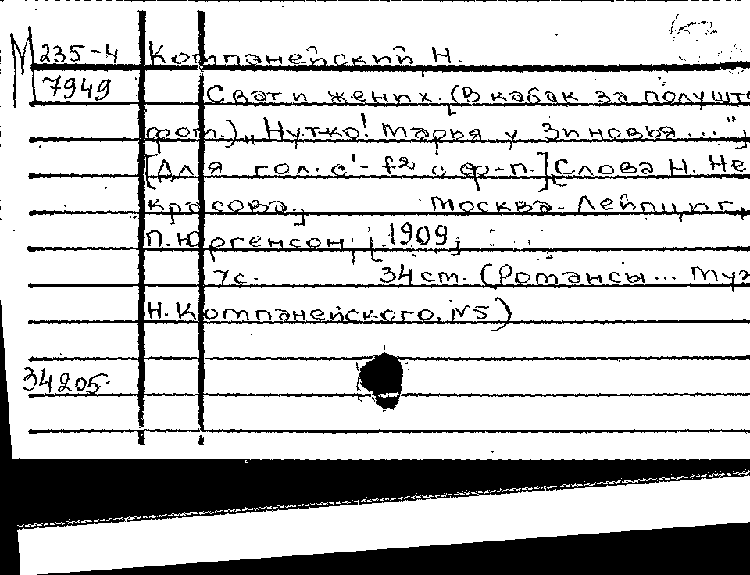 М 235-4 Компанейский, Н.
7949 Сват и жених. (В кабак за полушто
фом.) „Нутко! Марья у Зиновья..."
[Для гол. c¹-f² и ф-п.] [Слова Н. Не
красова.] Москва-Лейпциг,
П. Юргенсон, [1909]
7 с. 34 cm. (Романсы... Муз
Н. Компанейского. №5)
34205.